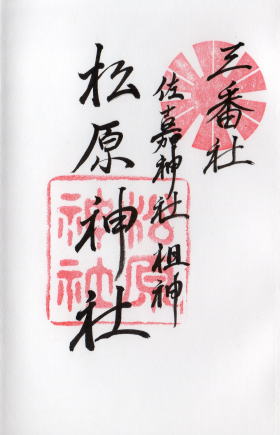 三番社
佐嘉神社 祖神
松原神社
松原
神社